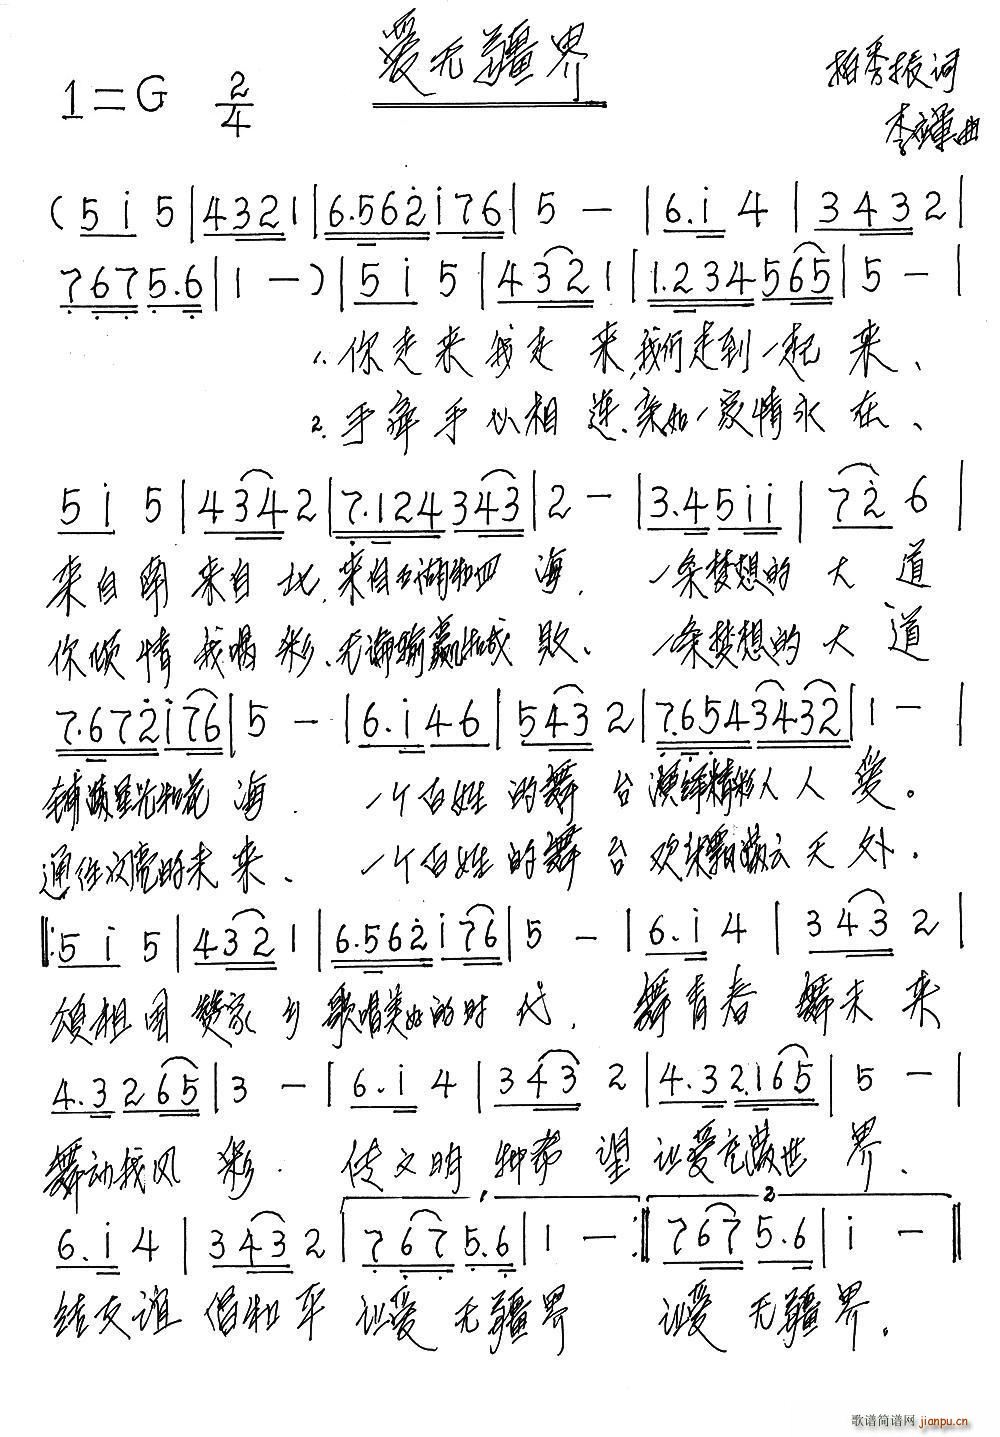 爱无疆界
1=G 2/4
柏秀振词
李 曲
(5 i 5|4321|6.562i76|5 -|6.i 4|3432|
7675.6|1 -)|5 i 5|4321|1.234565|5 -|
1.你走来我走来,我们走到一起来、
2.手牵手心相连、亲如一家情永在、
5 i 5|4342|7.124343|2 -|3.45ii|72 6|
来自南来自北,来自五湖和四海. 一条梦想的大道
你倾情我喝彩、无论输赢和成败、 一条梦想的大道
7.672i76|5 -|6.i46|543 2|7.6543432|1 -|
铺满星光和花海. 一个百姓的舞台演绎精彩人人爱。
通往闪亮的未来、 一个百姓的舞台欢天舞 云天外.
5 i 5|4321|6.562i76|5 -|6.i 4|343 2|
颂祖国赞家乡歌唱美好的时代, 舞青春舞未来
4.3265|3 -|6.i 4|343 2|4.32.165|5 -|
舞动我风彩. 传文明种希望让爱充满世界、
6.i 4|343 2|7675.6|1 -:|7675.6|i -||
1, 2
结友谊倡和平让爱无疆界 让爱无疆界.
歌谱简谱网
jianpu.cn